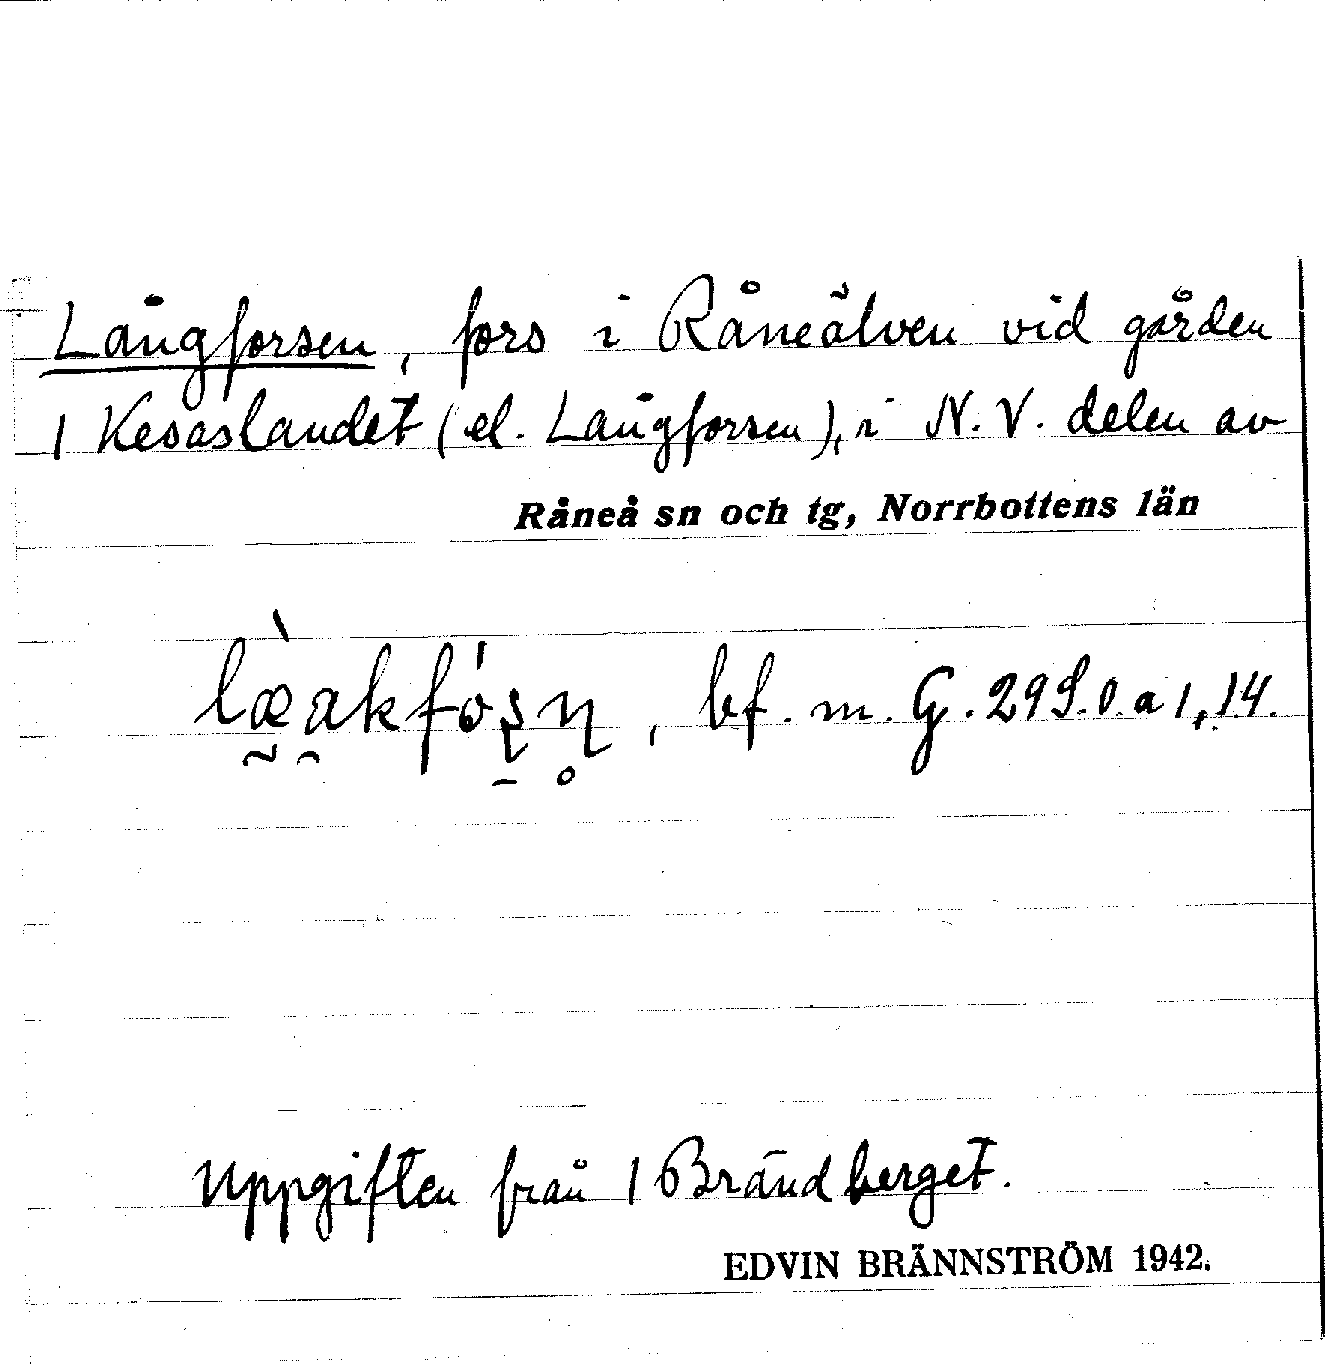 Långforsen, fors i Råneälven vid gården
1 Kesaslandet (el. Långforsen), i N.V. delen av
Råneå sn och tg, Norrbottens län
læ̰̀a̯kfó̩ʂɳ̥, bf. m. G. 29 S.O. a 1, 14.
Uppgiften från 1 Brändberget.
EDVIN BRÄNNSTRÖM 1942.